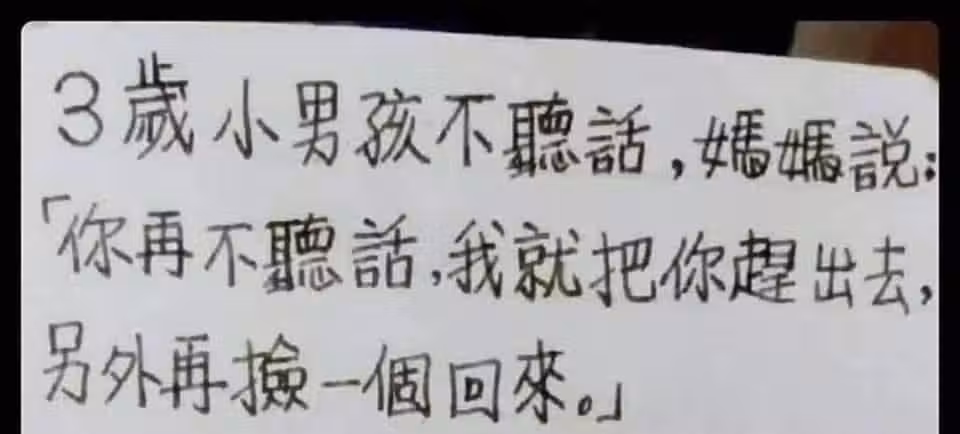 3歲小男孩不聽話,媽媽說:
「你再不聽話,我就把你趕出去,
另外再撿一個回來。」